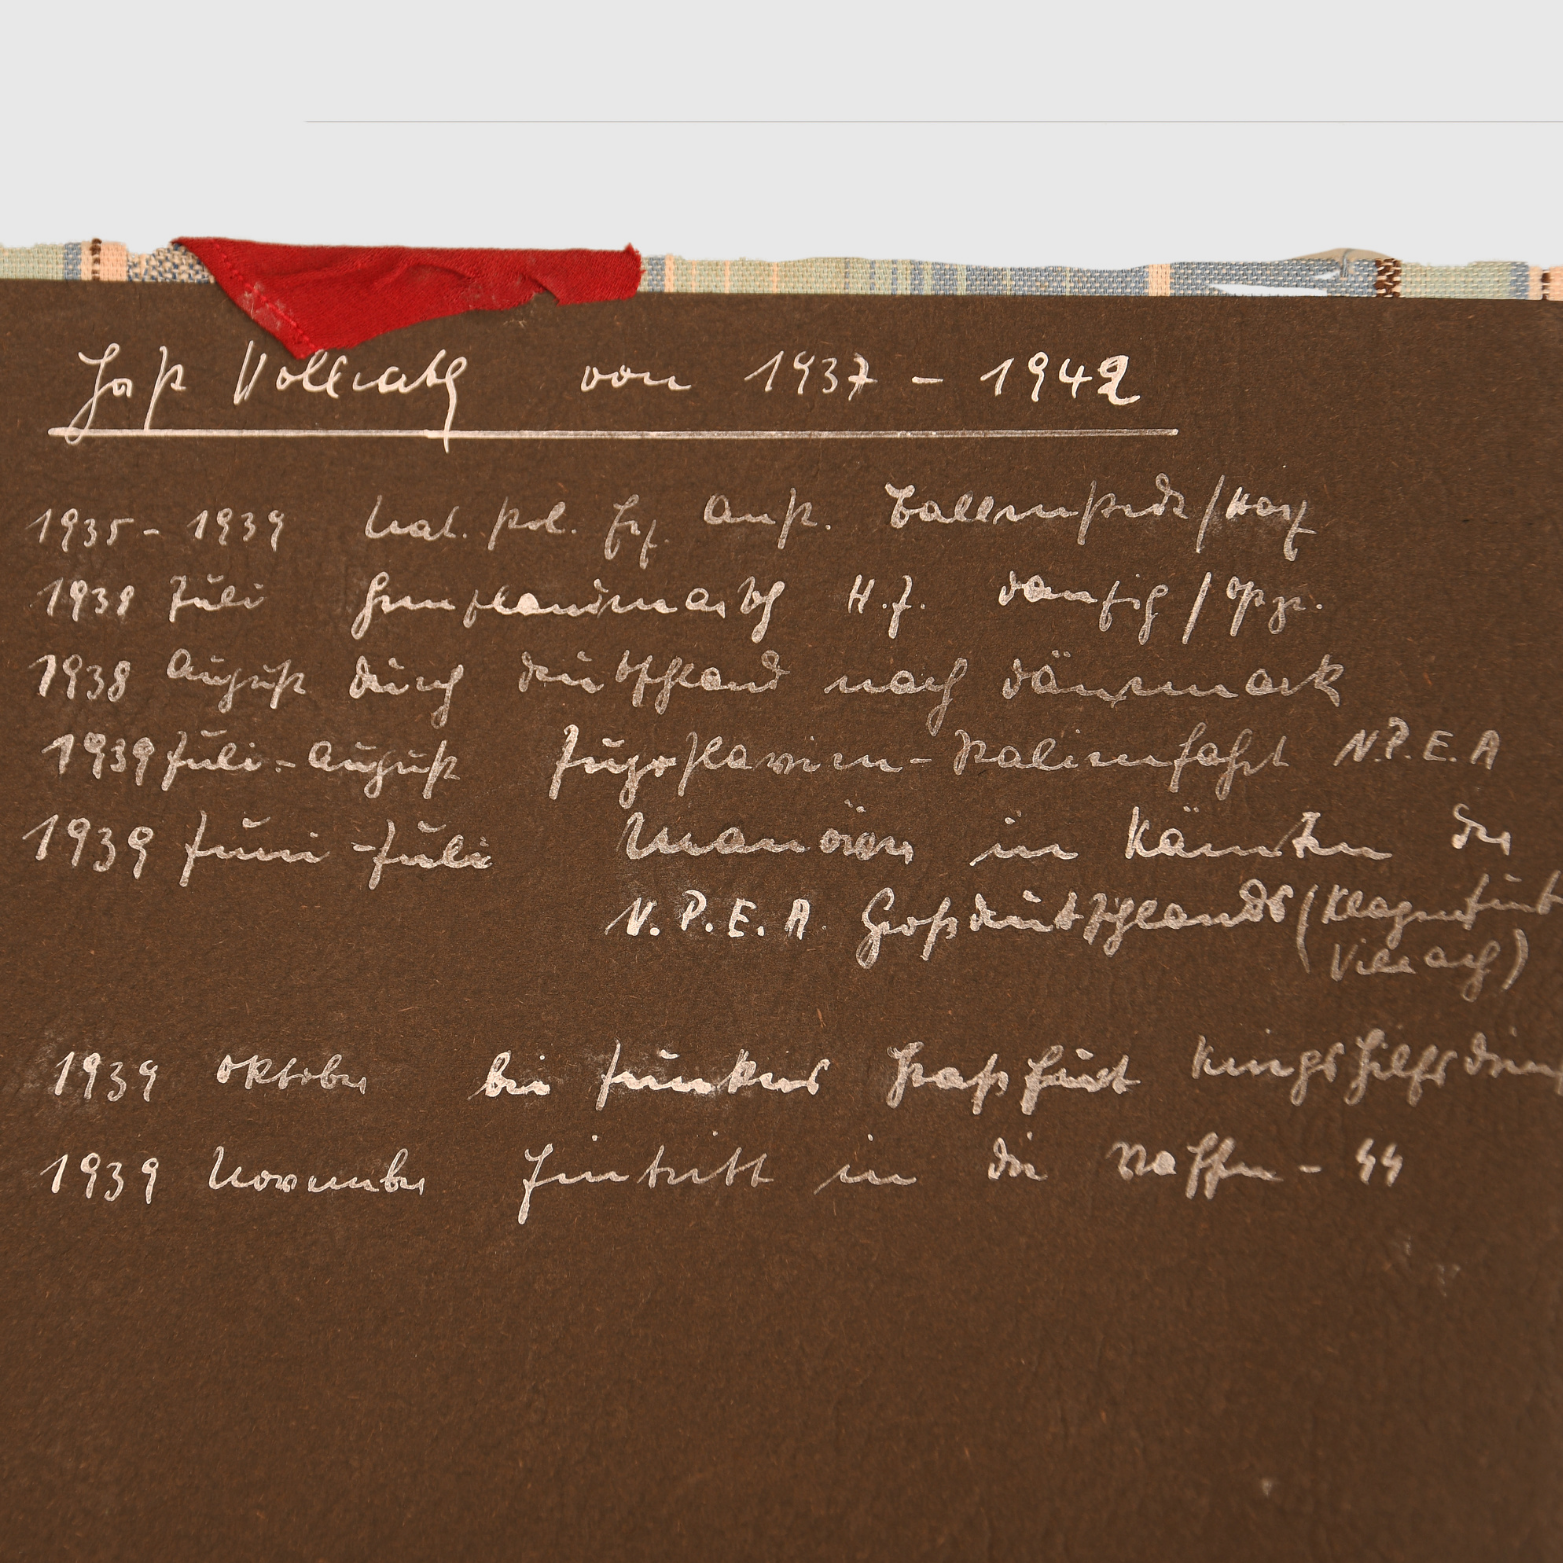 Jost Vollrath von 1937 - 1942
1935 - 1939 Nat. pol. Erz. Anst. Ballenstedt/Harz
1938 Juli Grenzlandmarsch H.J. Danzig/Opr.
1938 August durch Deutschland nach Dänemark
1939 Juli - August Jugoslawien-Italienfahrt N.P.E.A
1939 Juni - Juli Manöver in Kärnten der
N.P.E.A. Großdeutschlands (Klagenfurt
Villach)
1939 Oktober bei Junkers Kriegshilfsdien
1939 November Eintritt in die Waffen-SS